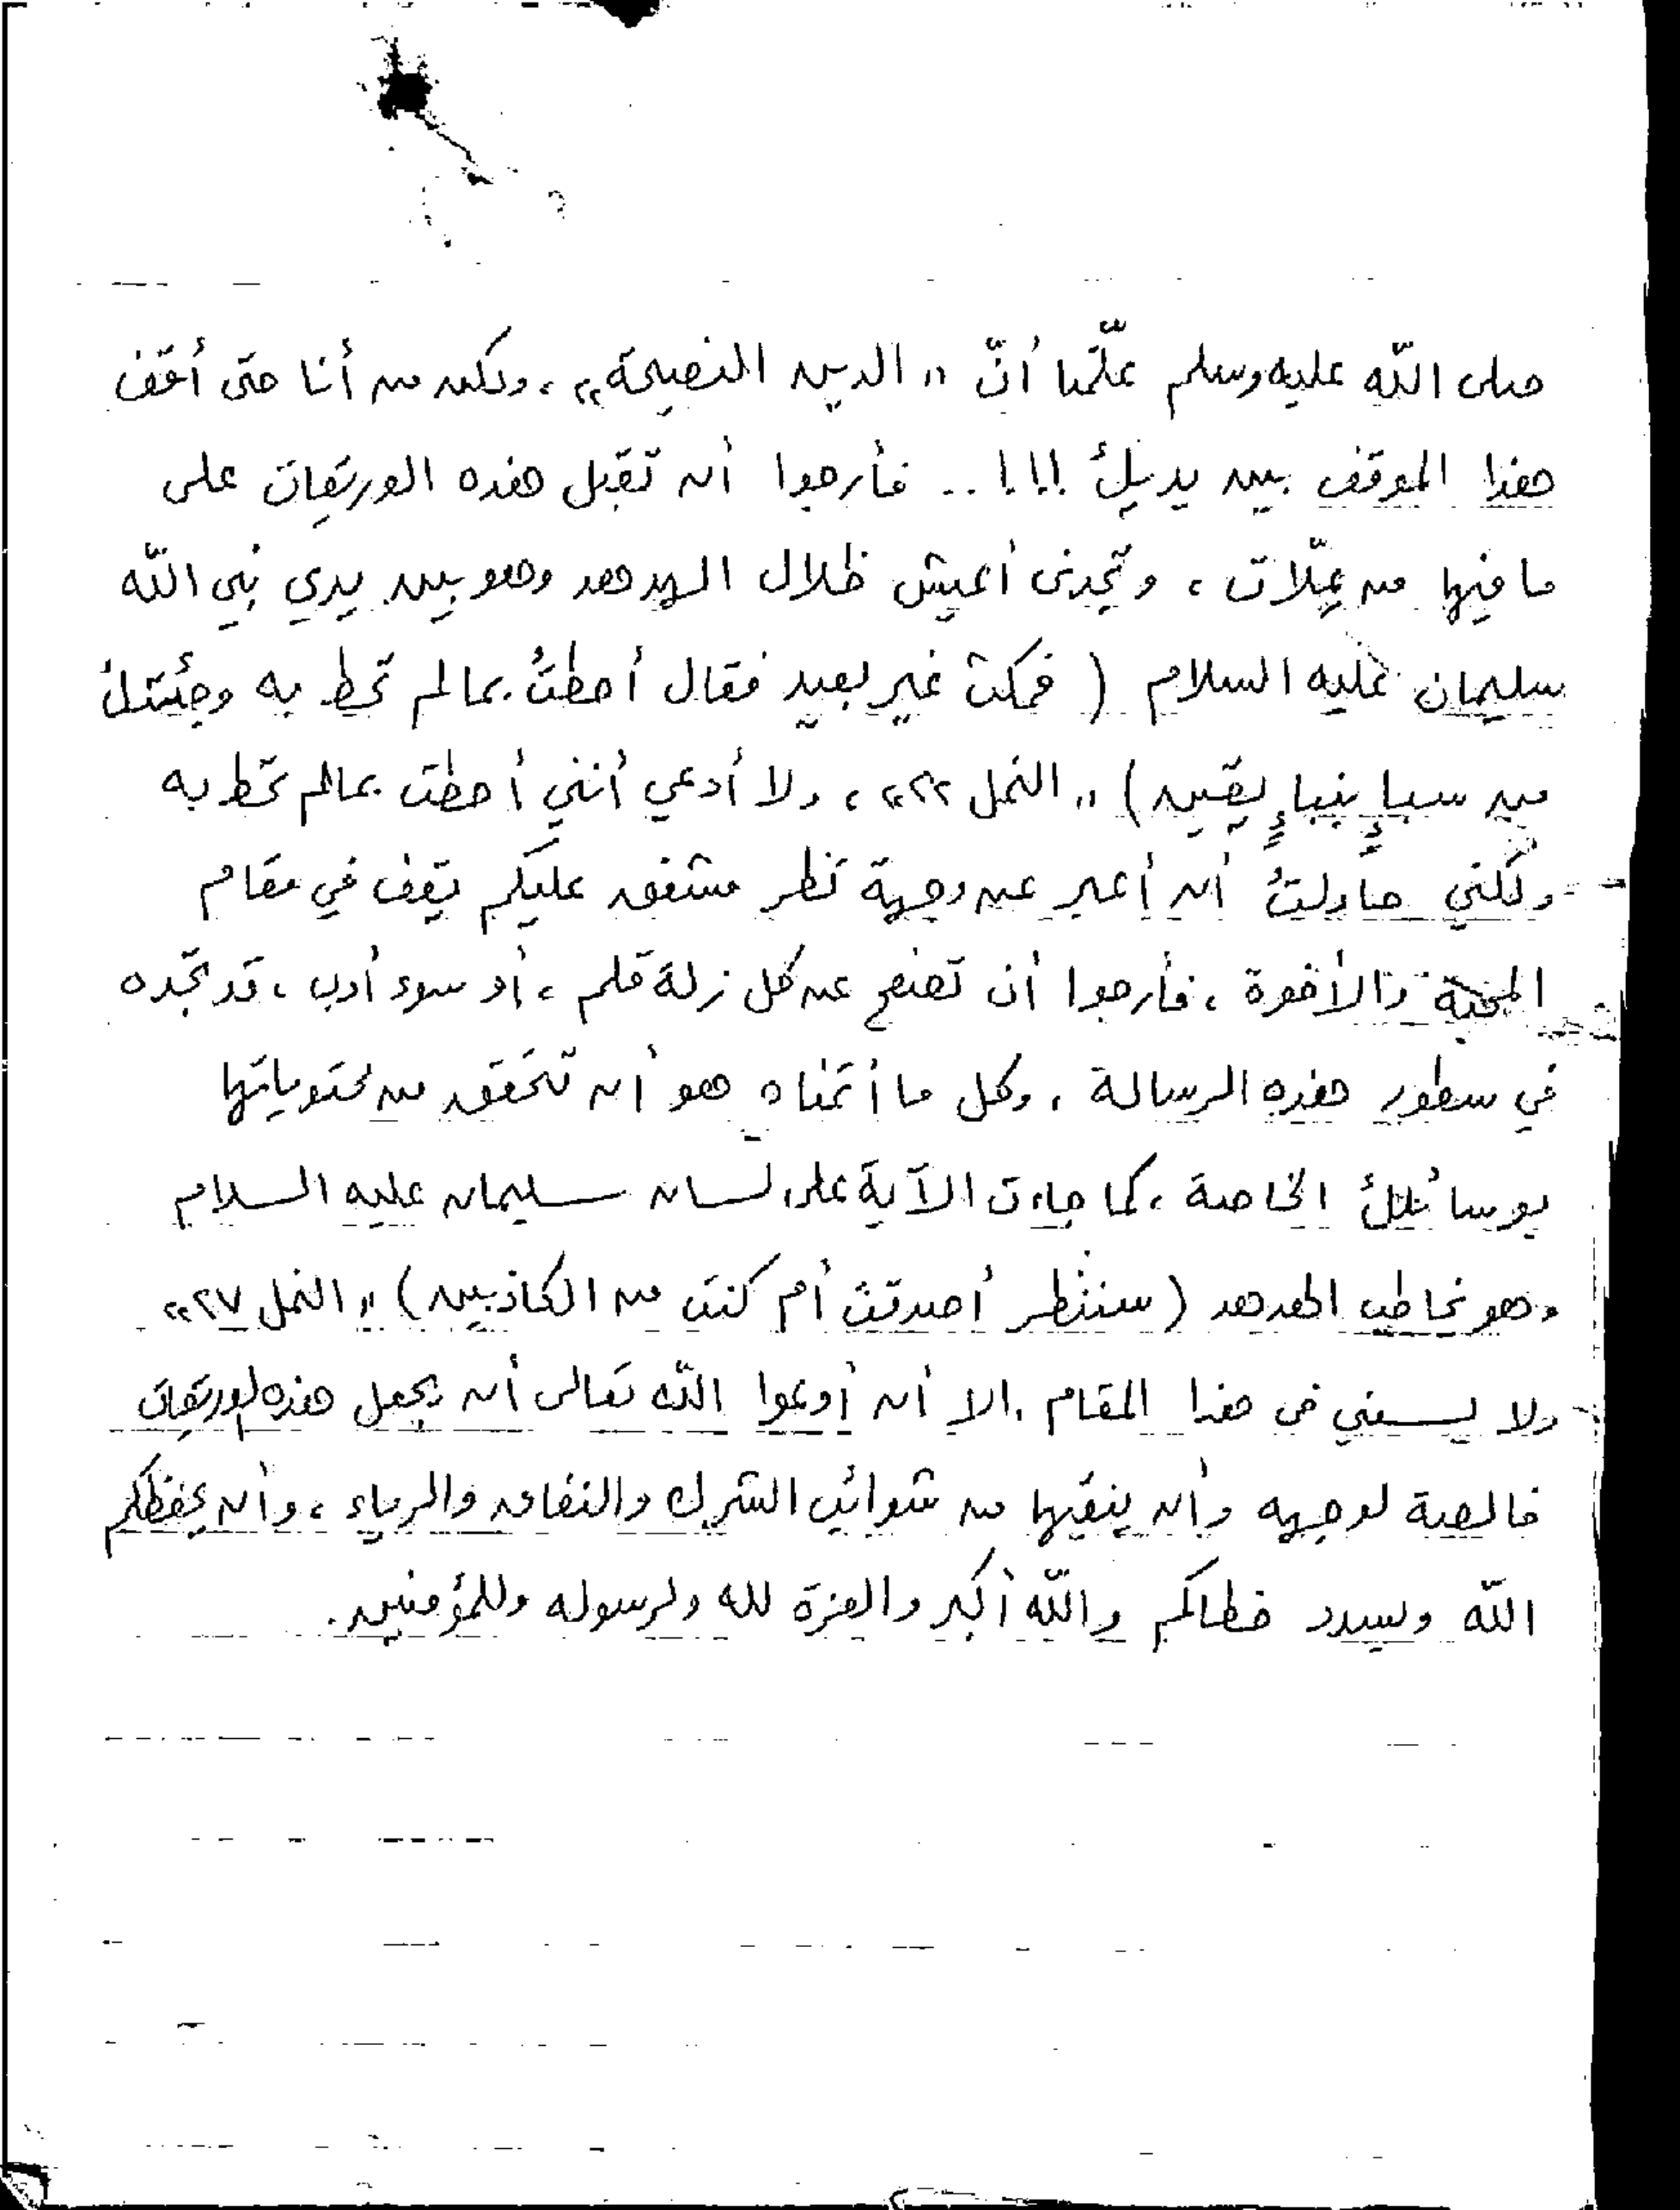 صلى الله عليه وسلم علّمنا أنّ "الدين النصيحة"، ولكن من أنا حتى أقف
هذا الموقف بين يديك !!!.. فأرجوا أن تقبل هذه الوريقات على
ما فيها من عِلّات، وتجدنى أعيش ظلال الهدهد وهو بين يدي نبي الله
سليمان عليه السلام ( فمكث غير بعيد فقال أحطتُ بمالم تحط به وجئتك
من سبإٍ بنبإٍ يقين) "النمل ٢٢"، ولا أدعي أنني أحطت بمالم تحط به
ولكني حاولتُ أن أعبر عن وجهة نظر مشفق عليكم يقف في مقام
المحبة والأخوة، فأرجوا أن تصفح عن كل زلة قلم، أو سوء أدب، قد تجده
في سطور هذه الرسالة، وكل ما أتمناه هو أن تتحقق من محتوياتها
بوسائلك الخاصة، كما جاءت الآية على لسان سليمان عليه السلام
وهو يخاطب الهدهد (سننظر أصدقت أم كنت من الكاذبين) "النمل ٢٧"
ولا يسعني فى هذا المقام، الا أن أدعوا الله تعالى أن يجعل هذه الوريقات
خالصة لوجهه وأن ينقيها من شوائب الشرك والنفاق والرياء، وأن يحفظكم
الله ويسدد خطاكم والله أكبر والعزة لله ولرسوله وللمؤمنين.